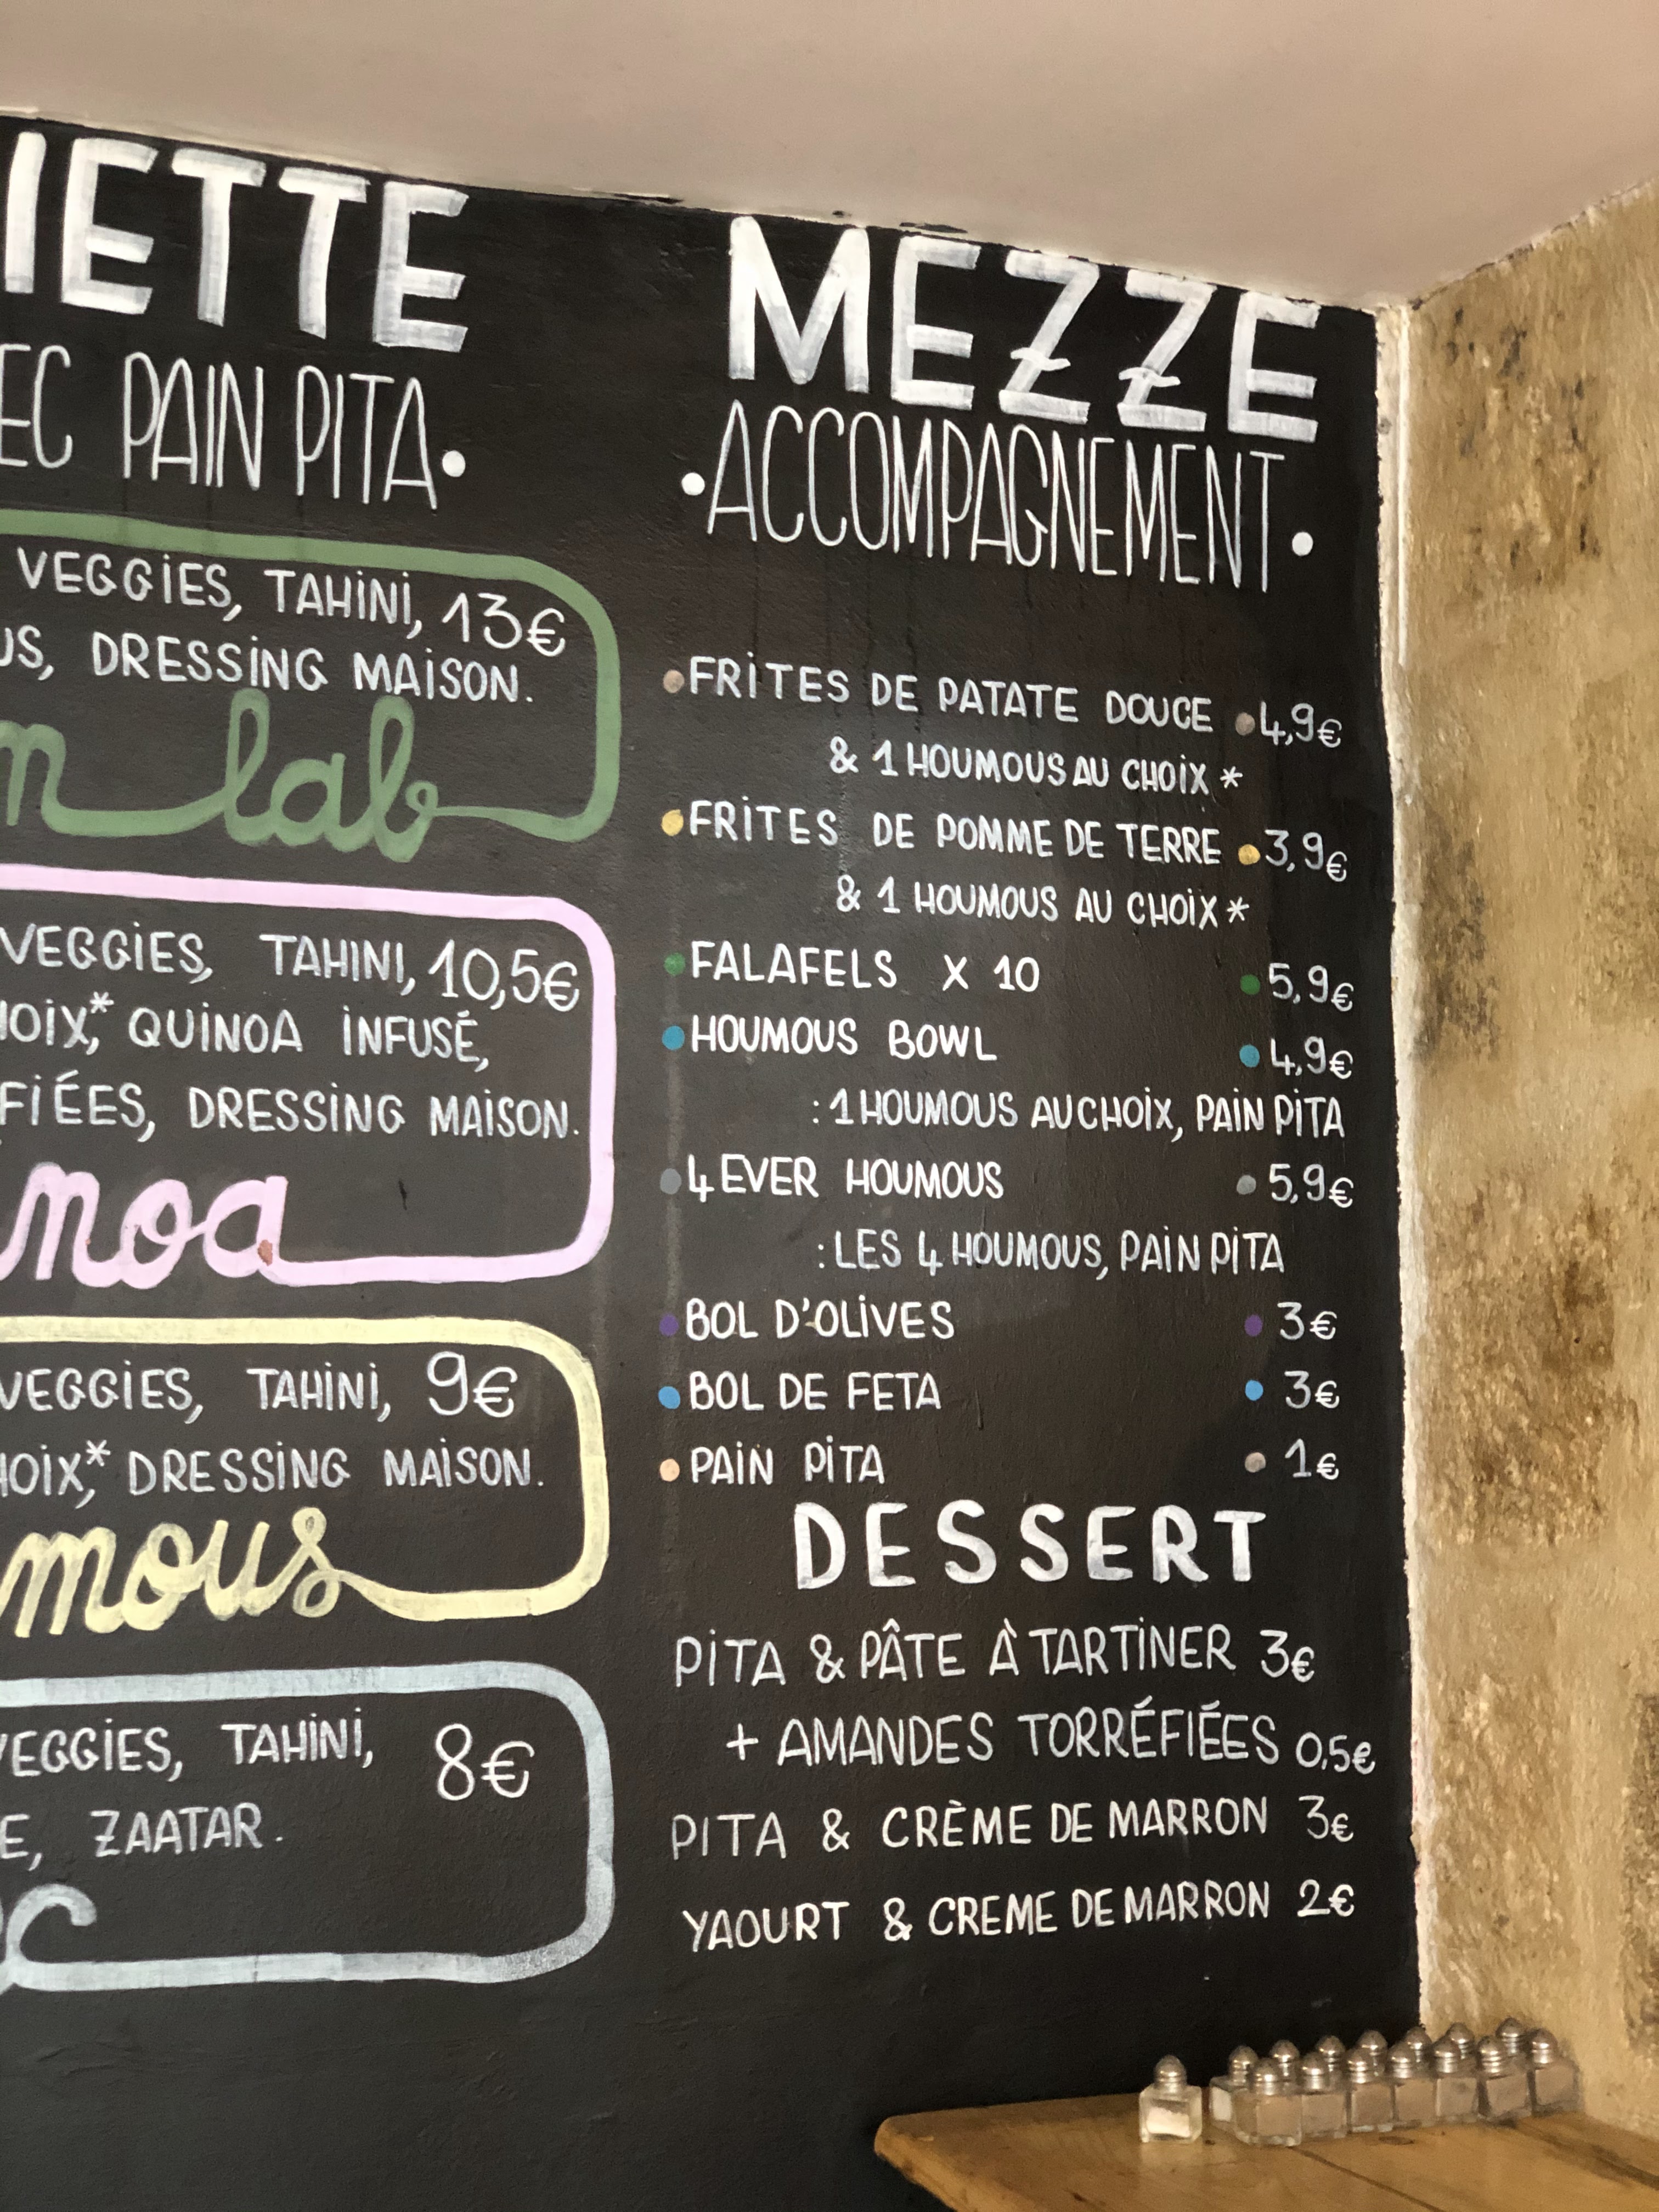 PAIN PITA.
VEGGIES, TAHINI, 13€
DRESSING MAISON.
lab
VEGGIES, TAHINI, 10,5€
QUINOA INFUSÉ,
DRESSING MAISON.
VEGGIES, TAHINI, 9€
DRESSING MAISON.
VEGGIES, TAHINI, 8€
ZAATAR.
MEZZE
•ACCOMPAGNEMENT•
•FRITES DE PATATE DOUCE •4,9€
& 1 HOUMOUS AU CHOIX *
•FRITES DE POMME DE TERRE •3,9€
& 1 HOUMOUS AU CHOIX *
•FALAFELS X 10 •5,9€
•HOUMOUS BOWL •4,9€
: 1 HOUMOUS AU CHOIX, PAIN PITA
•4 EVER HOUMOUS •5,9€
: LES 4 HOUMOUS, PAIN PITA
•BOL D'OLIVES •3€
•BOL DE FETA •3€
•PAIN PITA •1€
DESSERT
PITA & PÂTE À TARTINER 3€
+ AMANDES TORRÉFIÉES 0,5€
PITA & CRÈME DE MARRON 3€
YAOURT & CREME DE MARRON 2€